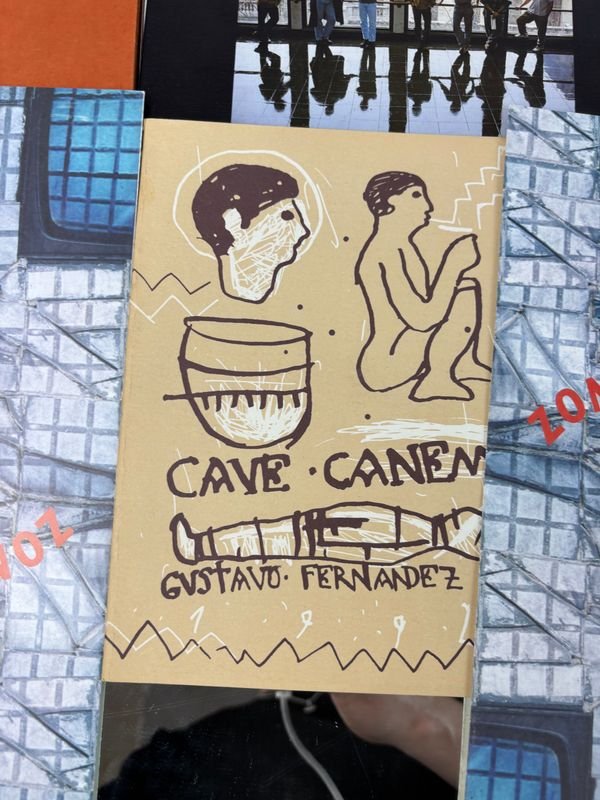 CAVE · CANEM
GUSTAVO · FERNANDEZ
1 9 9 1
ZON
VOZ